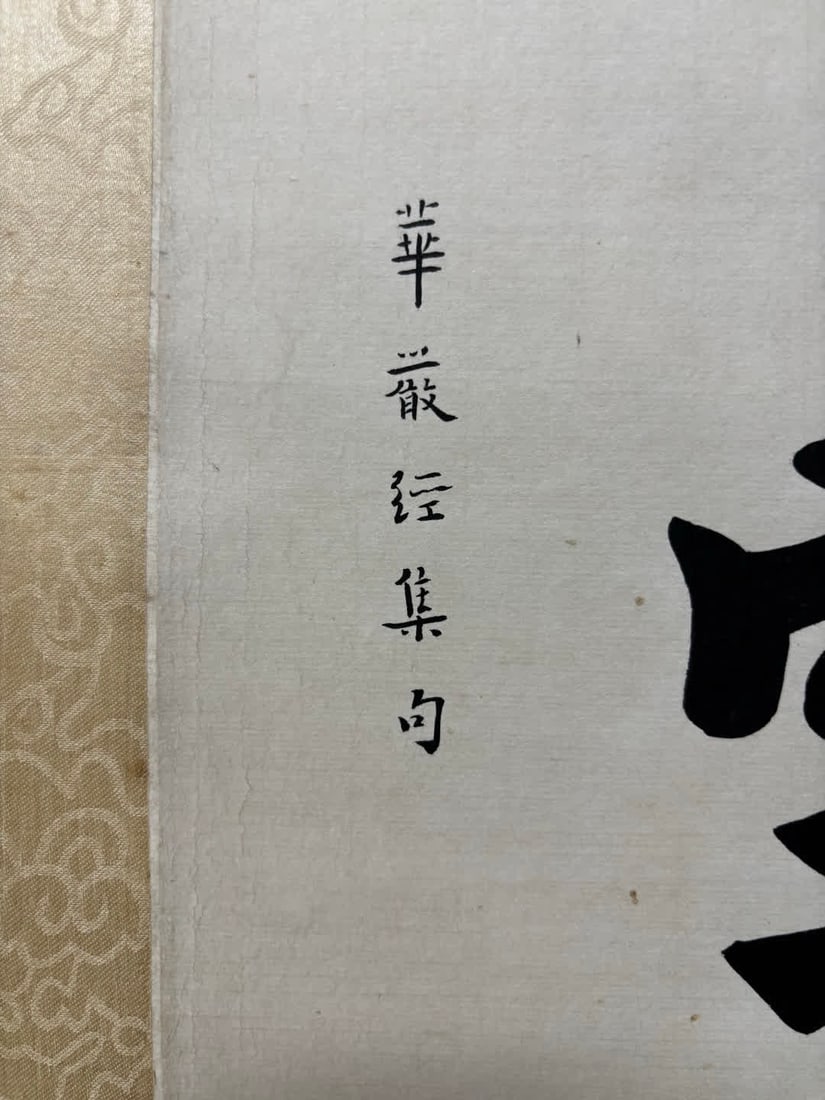 華嚴經集句